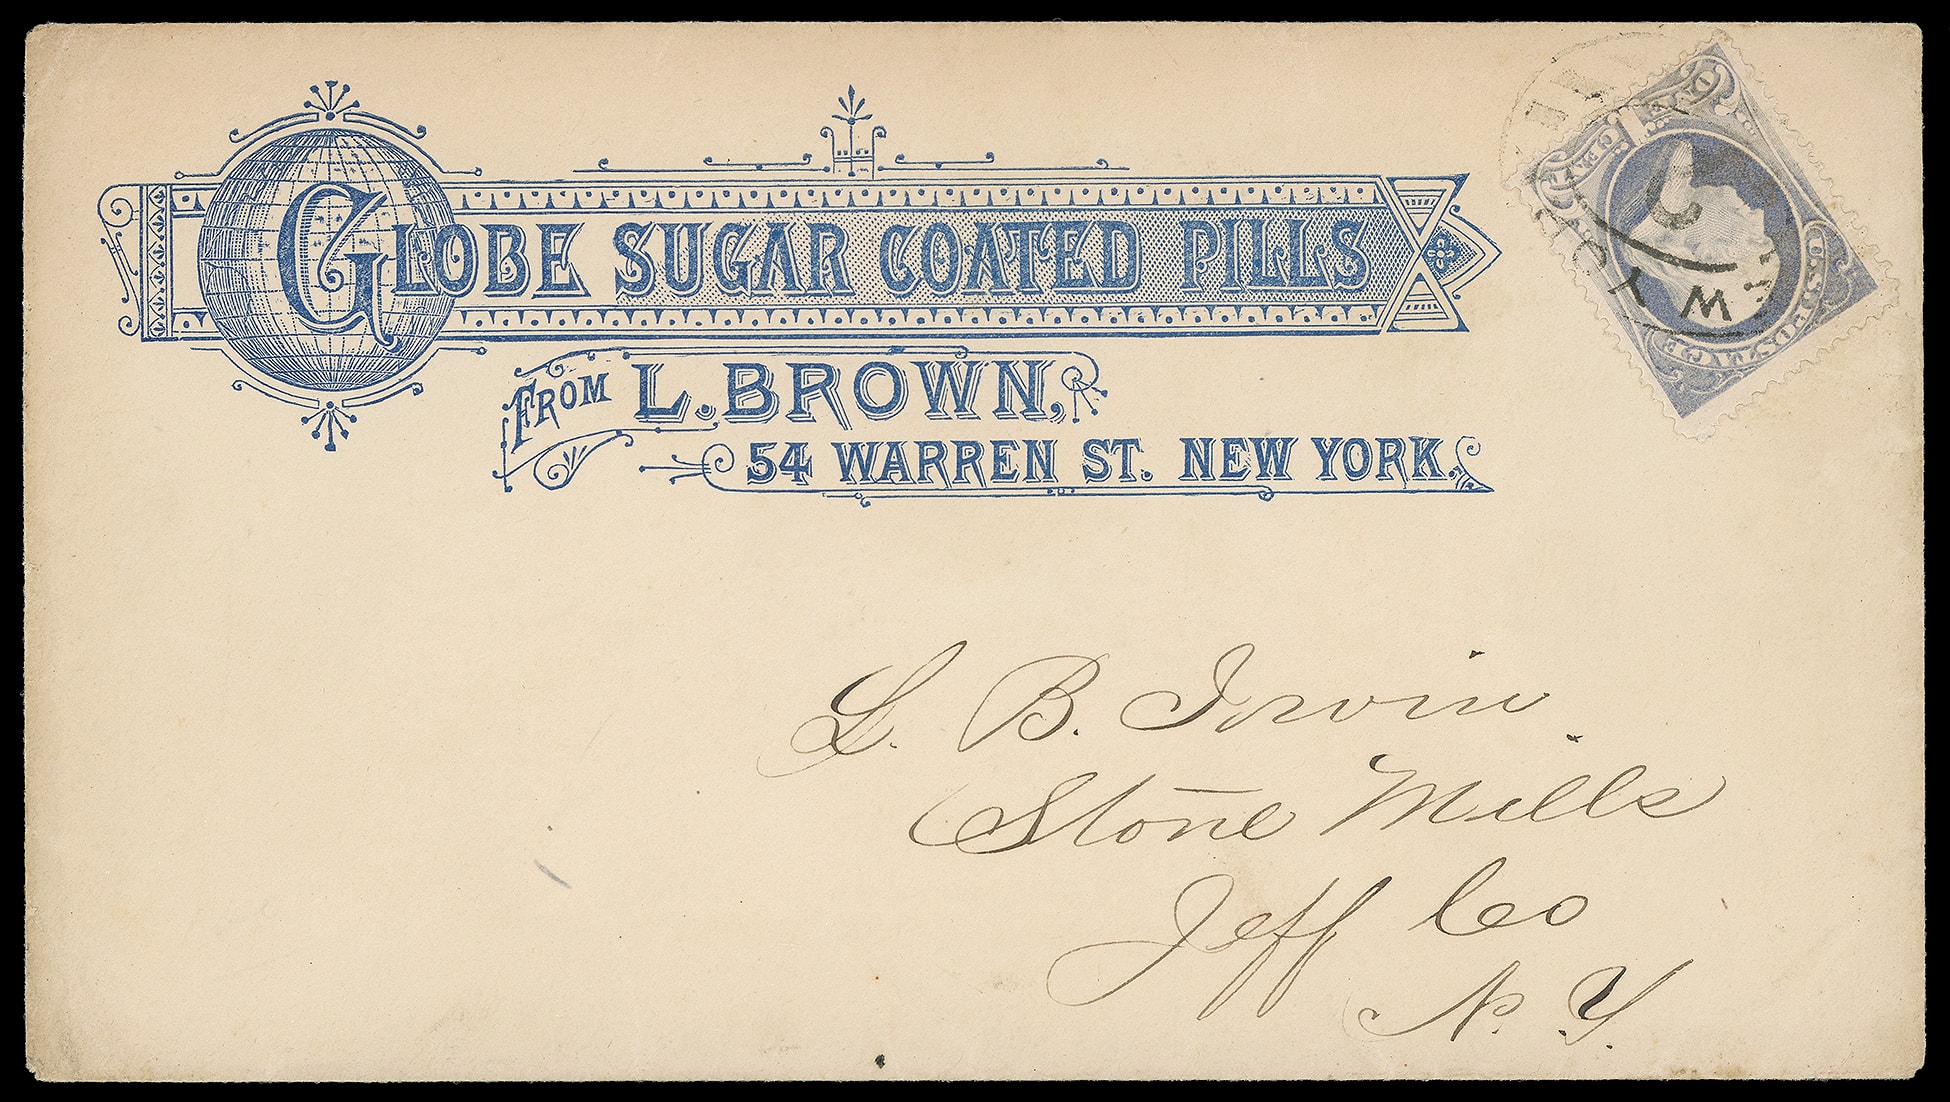 GLOBE SUGAR COATED PILLS
FROM L. BROWN,
54 WARREN ST. NEW YORK.
L. B. Irvin
Stone Mills
Jeff Co
N. Y.
U.S. POSTAGE